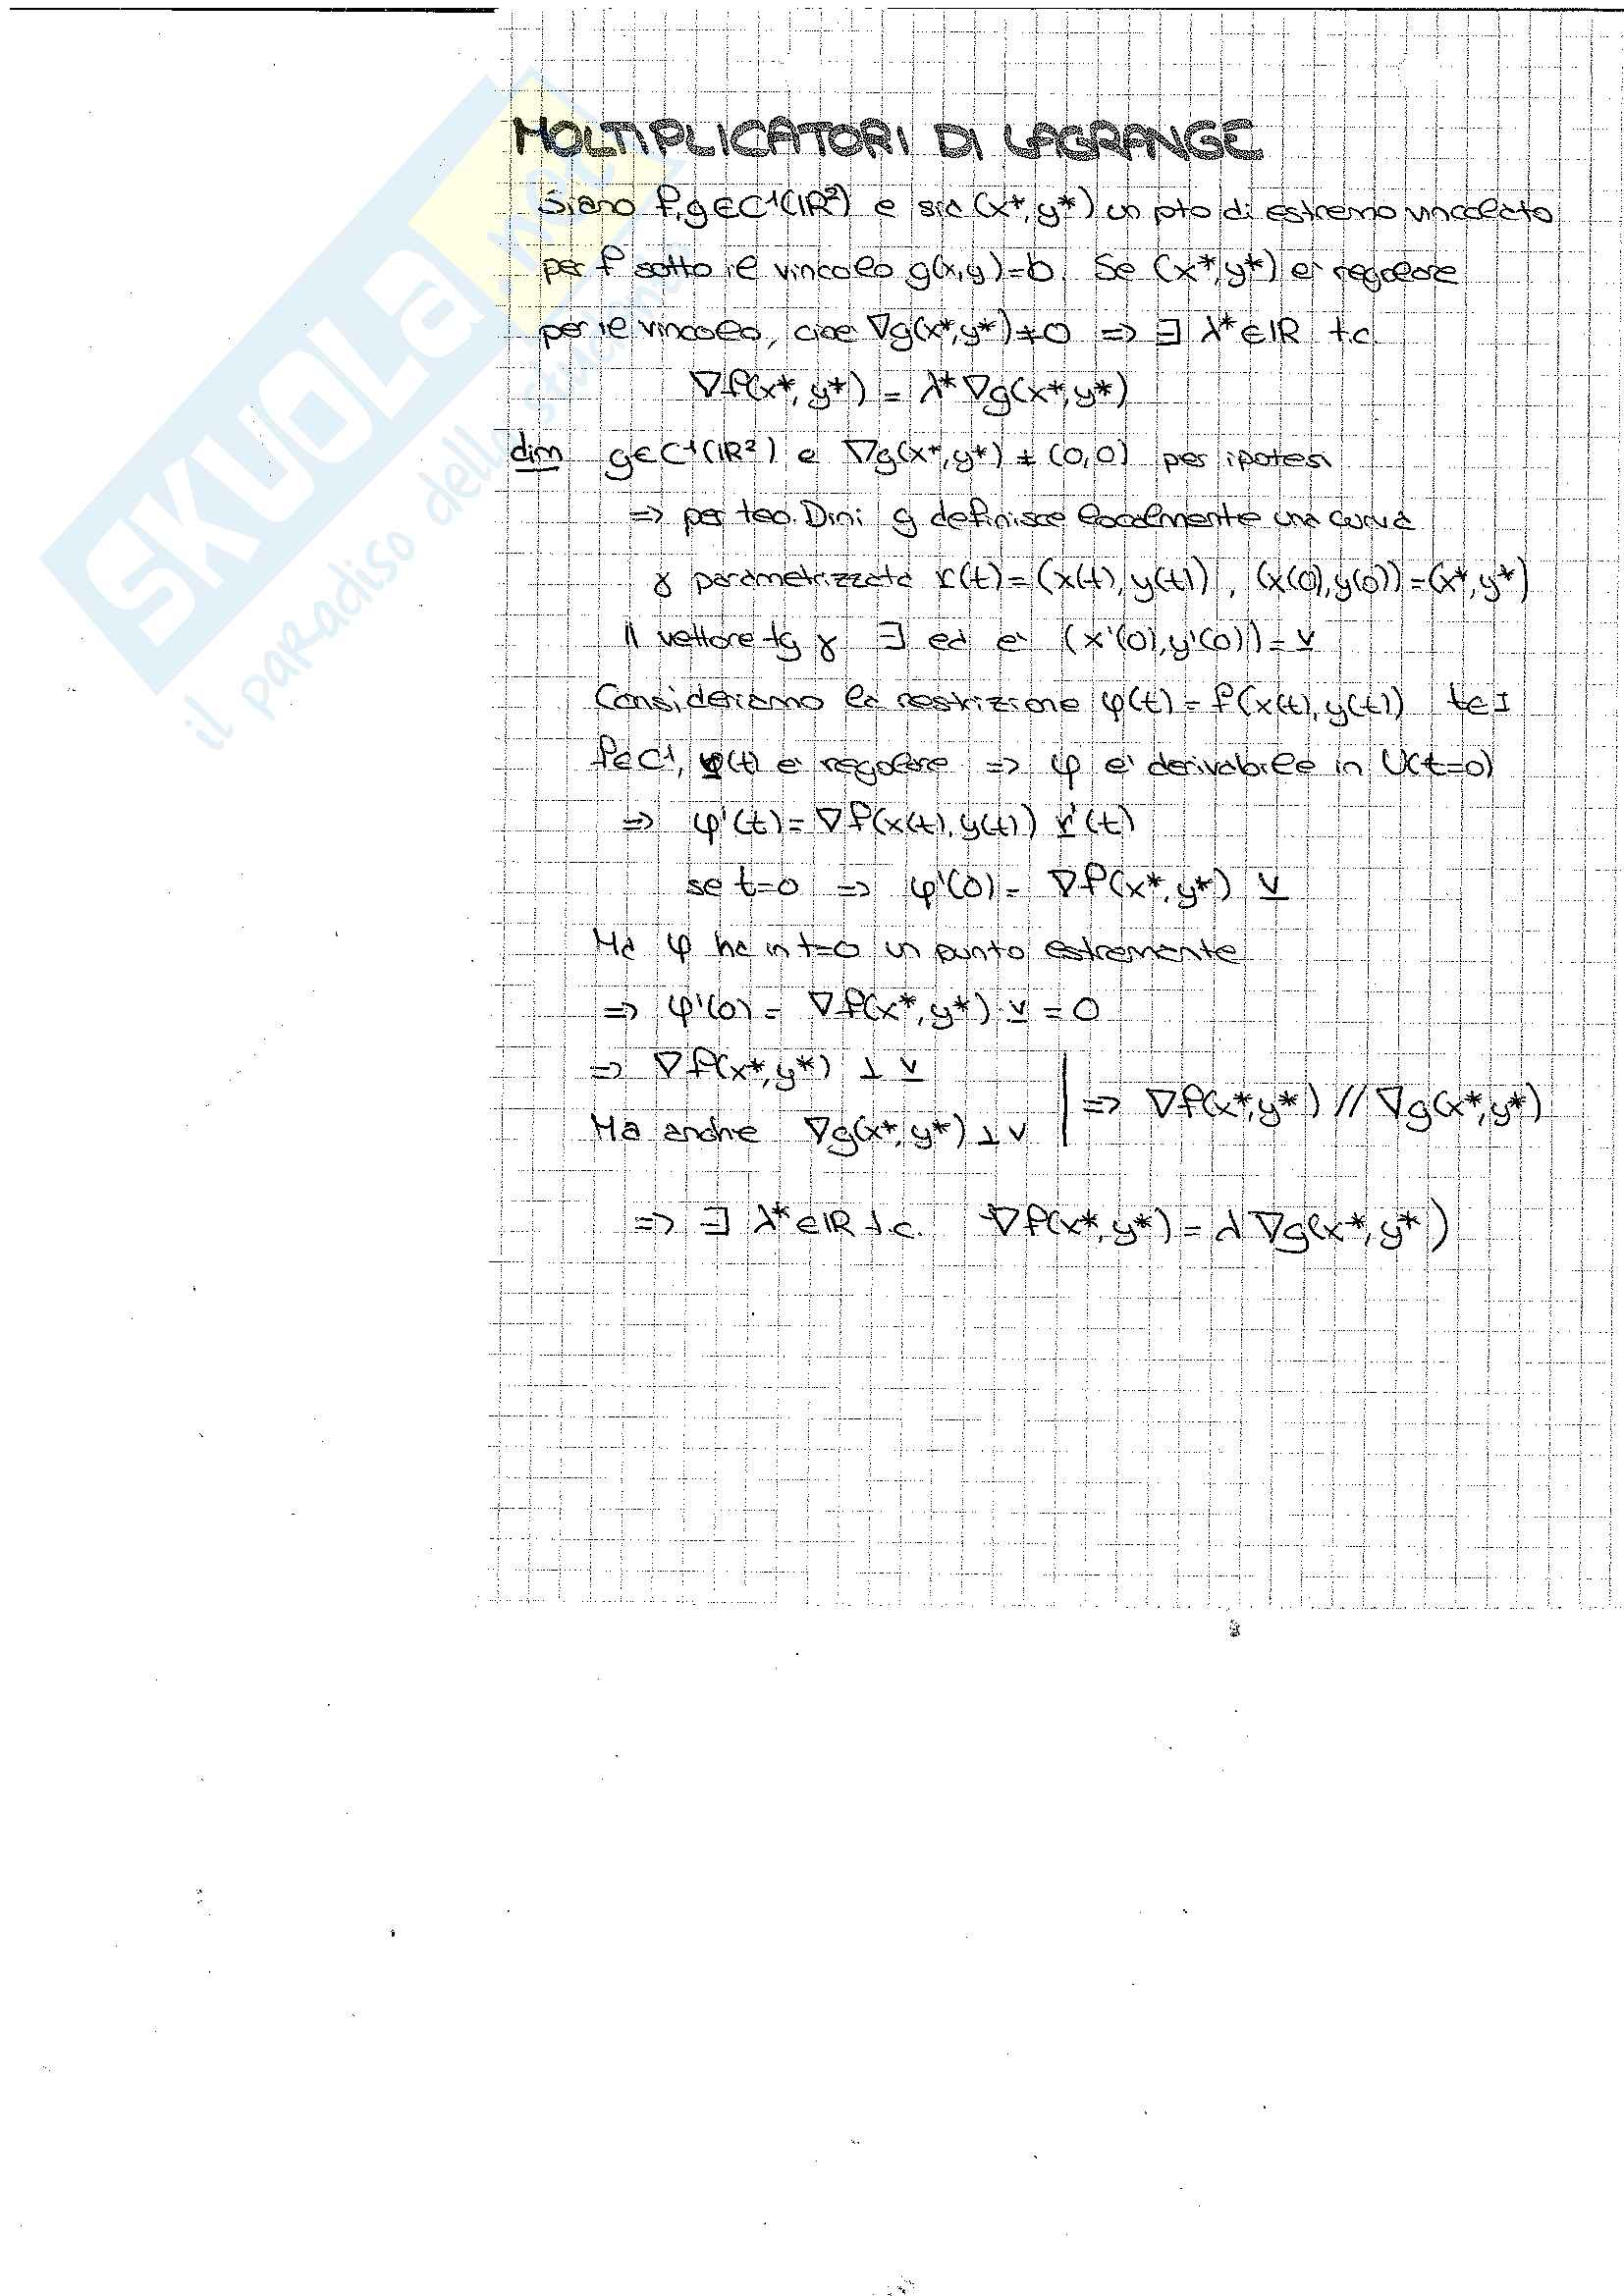 MOLTIPLICATORI DI LAGRANGE
Siano f,g∈C¹(ℝ²) e sia (x*,y*) un pto di estremo vincolato
per f sotto il vincolo g(x,y)=b. Se (x*,y*) e' regolare
per il vincolo, cioe ∇g(x*,y*)≠0 => ∃ λ*∈ℝ t.c.
∇f(x*,y*) = λ*∇g(x*,y*)
dim g∈C¹(ℝ²) e ∇g(x*,y*) ≠ (0,0) per ipotesi
=> per teo. Dini g definisce localmente una curva
γ parametrizzata r(t)=(x(t),y(t)), (x(0),y(0))=(x*,y*)
Il vettore tg γ ∃ ed e' (x'(0),y'(0))=v
Consideriamo la restrizione φ(t)=f(x(t),y(t)) t∈I
f∈C¹, (t) e' regolare => φ e' derivabile in U(t=0)
=> φ'(t)=∇f(x(t),y(t)) r'(t)
se t=0 => φ'(0)= ∇f(x*,y*) v
Ma φ ha in t=0 un punto estremante
=> φ'(0)= ∇f(x*,y*)·v=0
=> ∇f(x*,y*) ⊥ v
Ma anche ∇g(x*,y*)⊥v | => ∇f(x*,y*) // ∇g(x*,y*)
=> ∃ λ*∈ℝ t.c. ∇f(x*,y*)=λ∇g(x*,y*)
SKUOLA.net
il paradiso dello studente